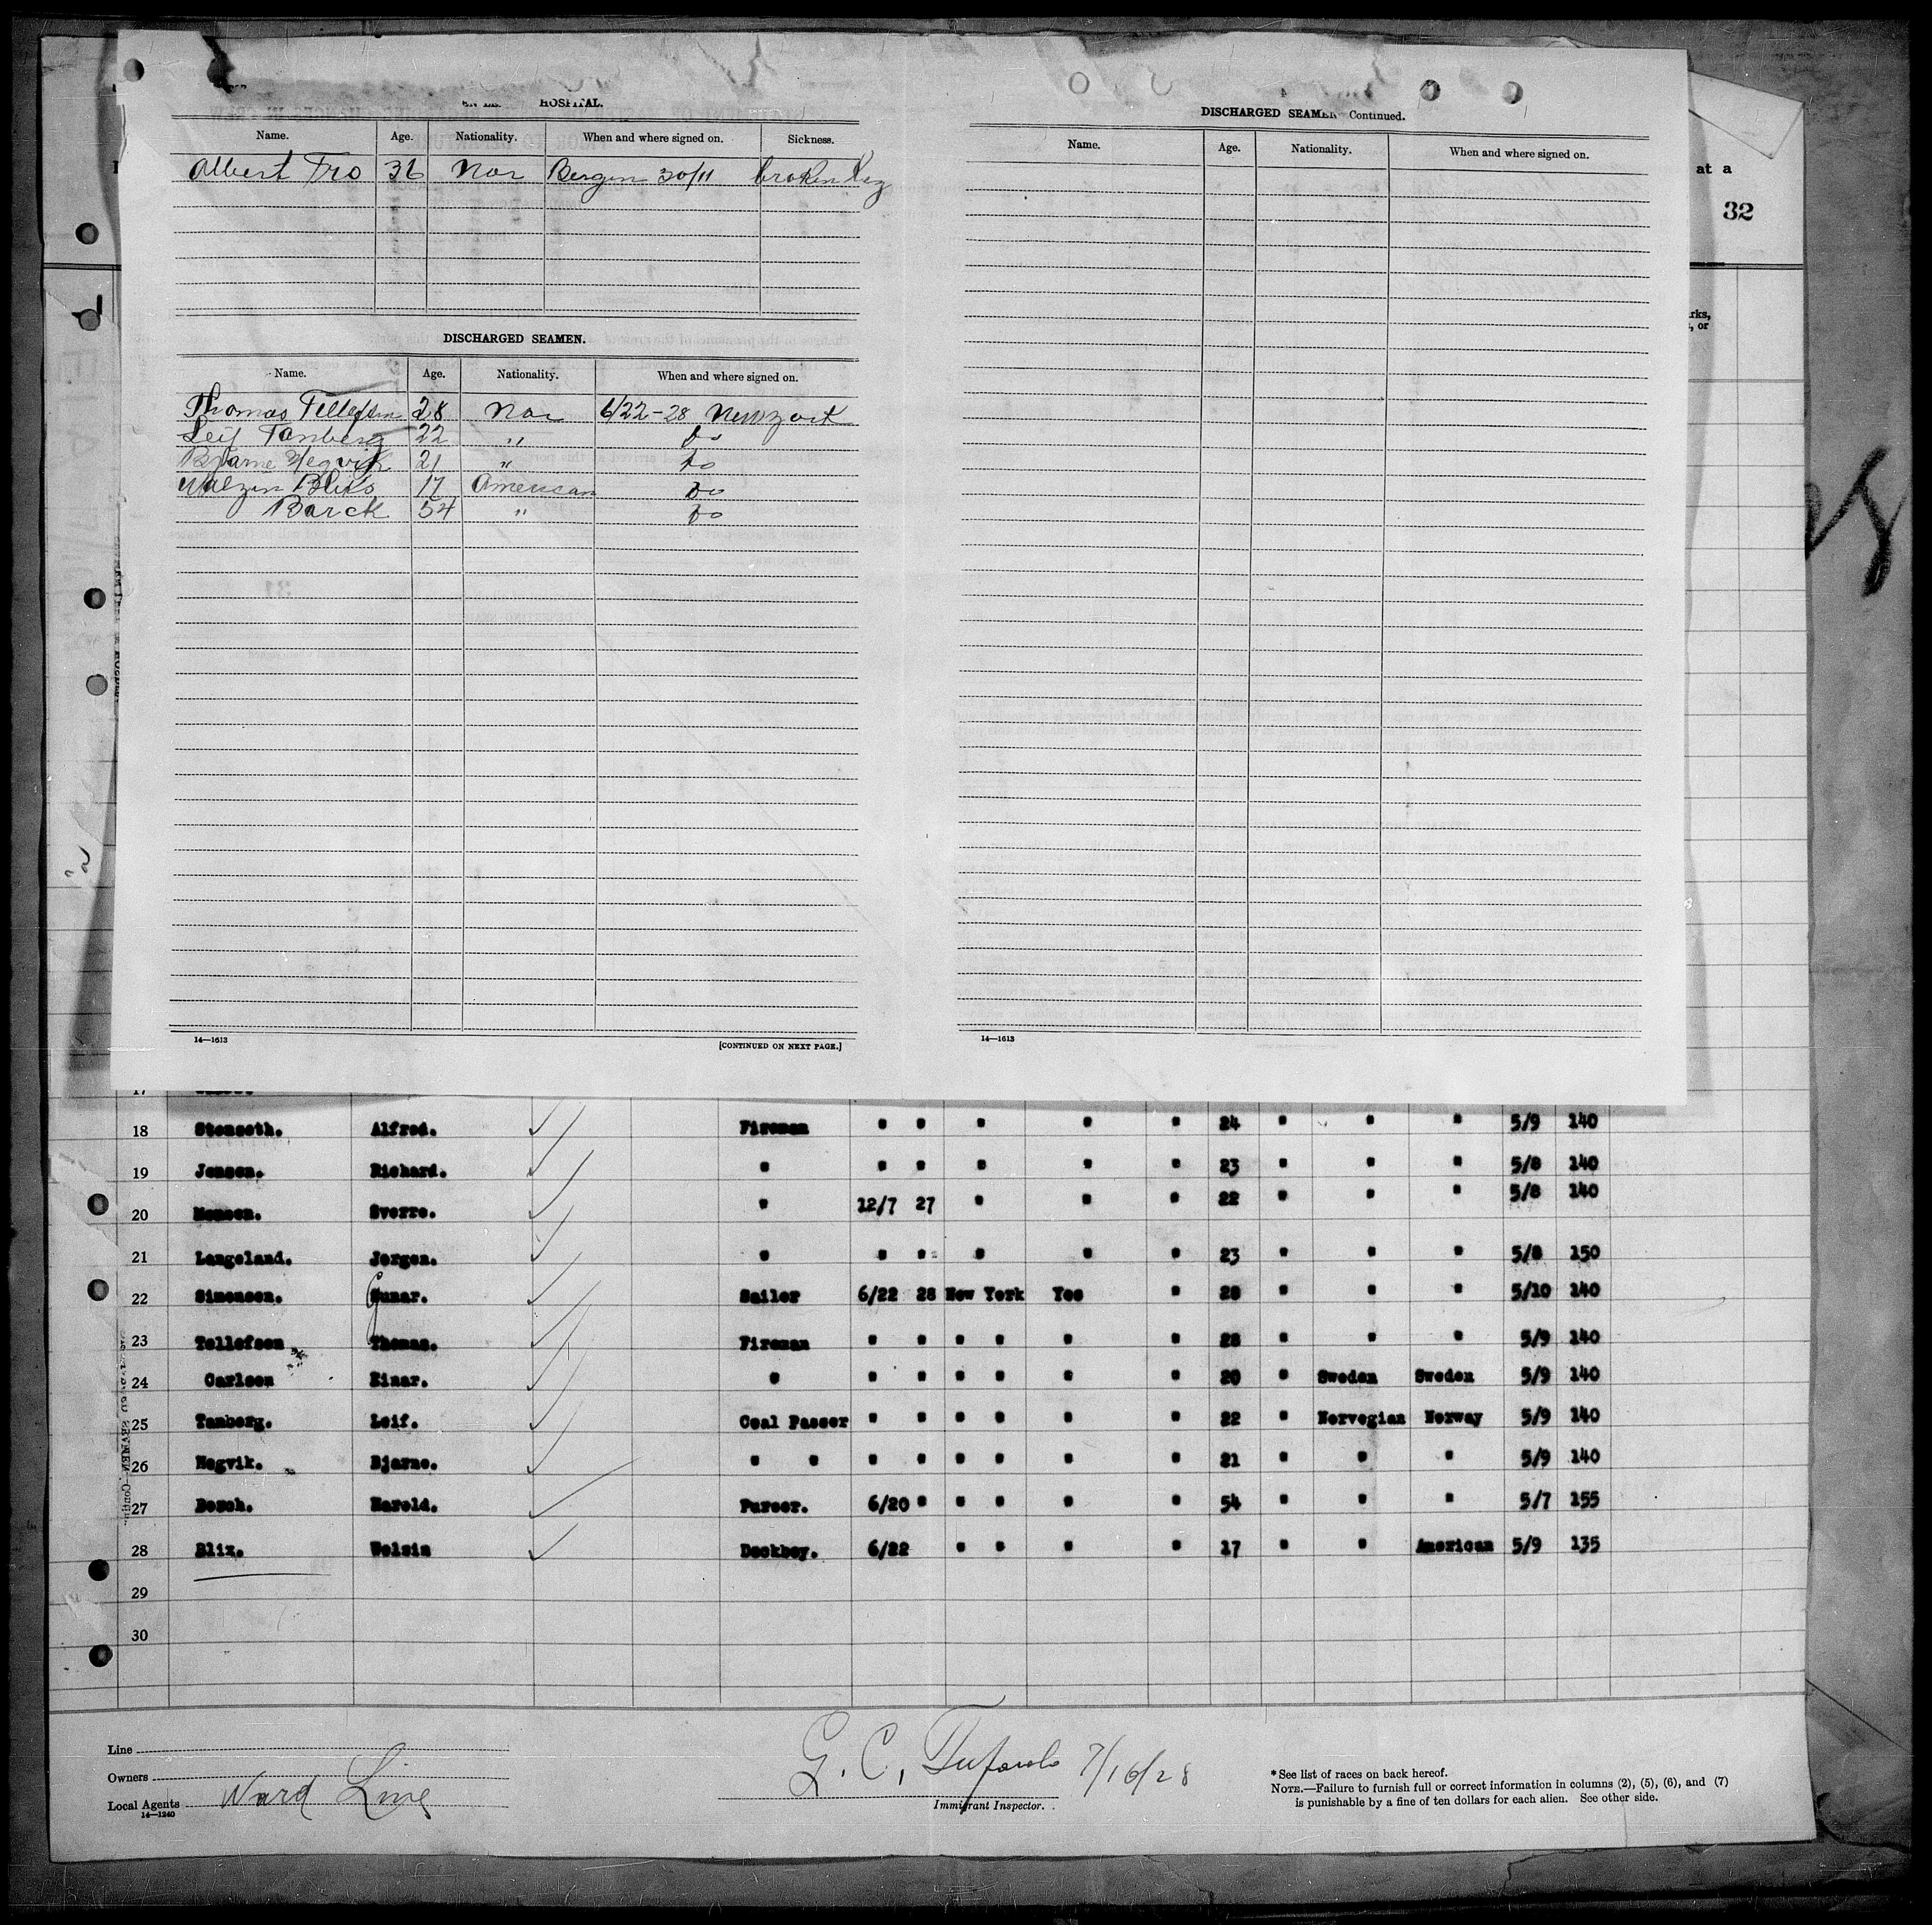 HOSPITAL.
Name. Age. Nationality. When and where signed on. Sickness.
Albert Tro 36 Nor Bergen 30/11 broken Leg
DISCHARGED SEAMEN.
Name. Age. Nationality. When and where signed on.
Thomas Tellefsen 28 Nor 6/22-28 New York
Leif Tanberg 22 " Do
Bjarne Negvik 21 " Do
Blix 17 American Do
Barck 54 " Do
14—1613 [CONTINUED ON NEXT PAGE.]
DISCHARGED SEAMEN Continued.
Name. Age. Nationality. When and where signed on.
14—1613
at a
32
rks,
, or
17
18 Stenseth. Alfred. Fireman " " " " " 24 " " " 5/9 140
19 Jensen. Richard. " " " " " " 23 " " " 5/8 140
20 Monsen. Sverre. " 12/7 27 " " " 22 " " " 5/8 140
21 Langeland. Jorgen. " " " " " " 23 " " " 5/8 150
22 Simonsen. Gunar. Sailor 6/22 28 New York Yes " 28 " " " 5/10 140
23 Tellefsen Thomas. Fireman " " " " " " 28 " " " 5/9 140
24 Carlsen Einar. " " " " " " " 20 " Sweden Sweden 5/9 140
25 Tanberg. Leif. Coal Passer " " " " " " 22 " Norvegian Norway 5/9 140
26 Negvik. Bjarne. " " " " " " " " 21 " " " 5/9 140
27 Harold. Purser. 6/20 " " " " " 54 " " " 5/7 155
28 Blix. Welsin Deckboy. 6/22 " " " " 17 " " American 5/9 135
29
30
Line
Owners
Local Agents Ward Line
14—1240
G. C. 7/16/28
Immigrant Inspector.
* See list of races on back hereof.
NOTE.—Failure to furnish full or correct information in columns (2), (5), (6), and (7)
is punishable by a fine of ten dollars for each alien. See other side.